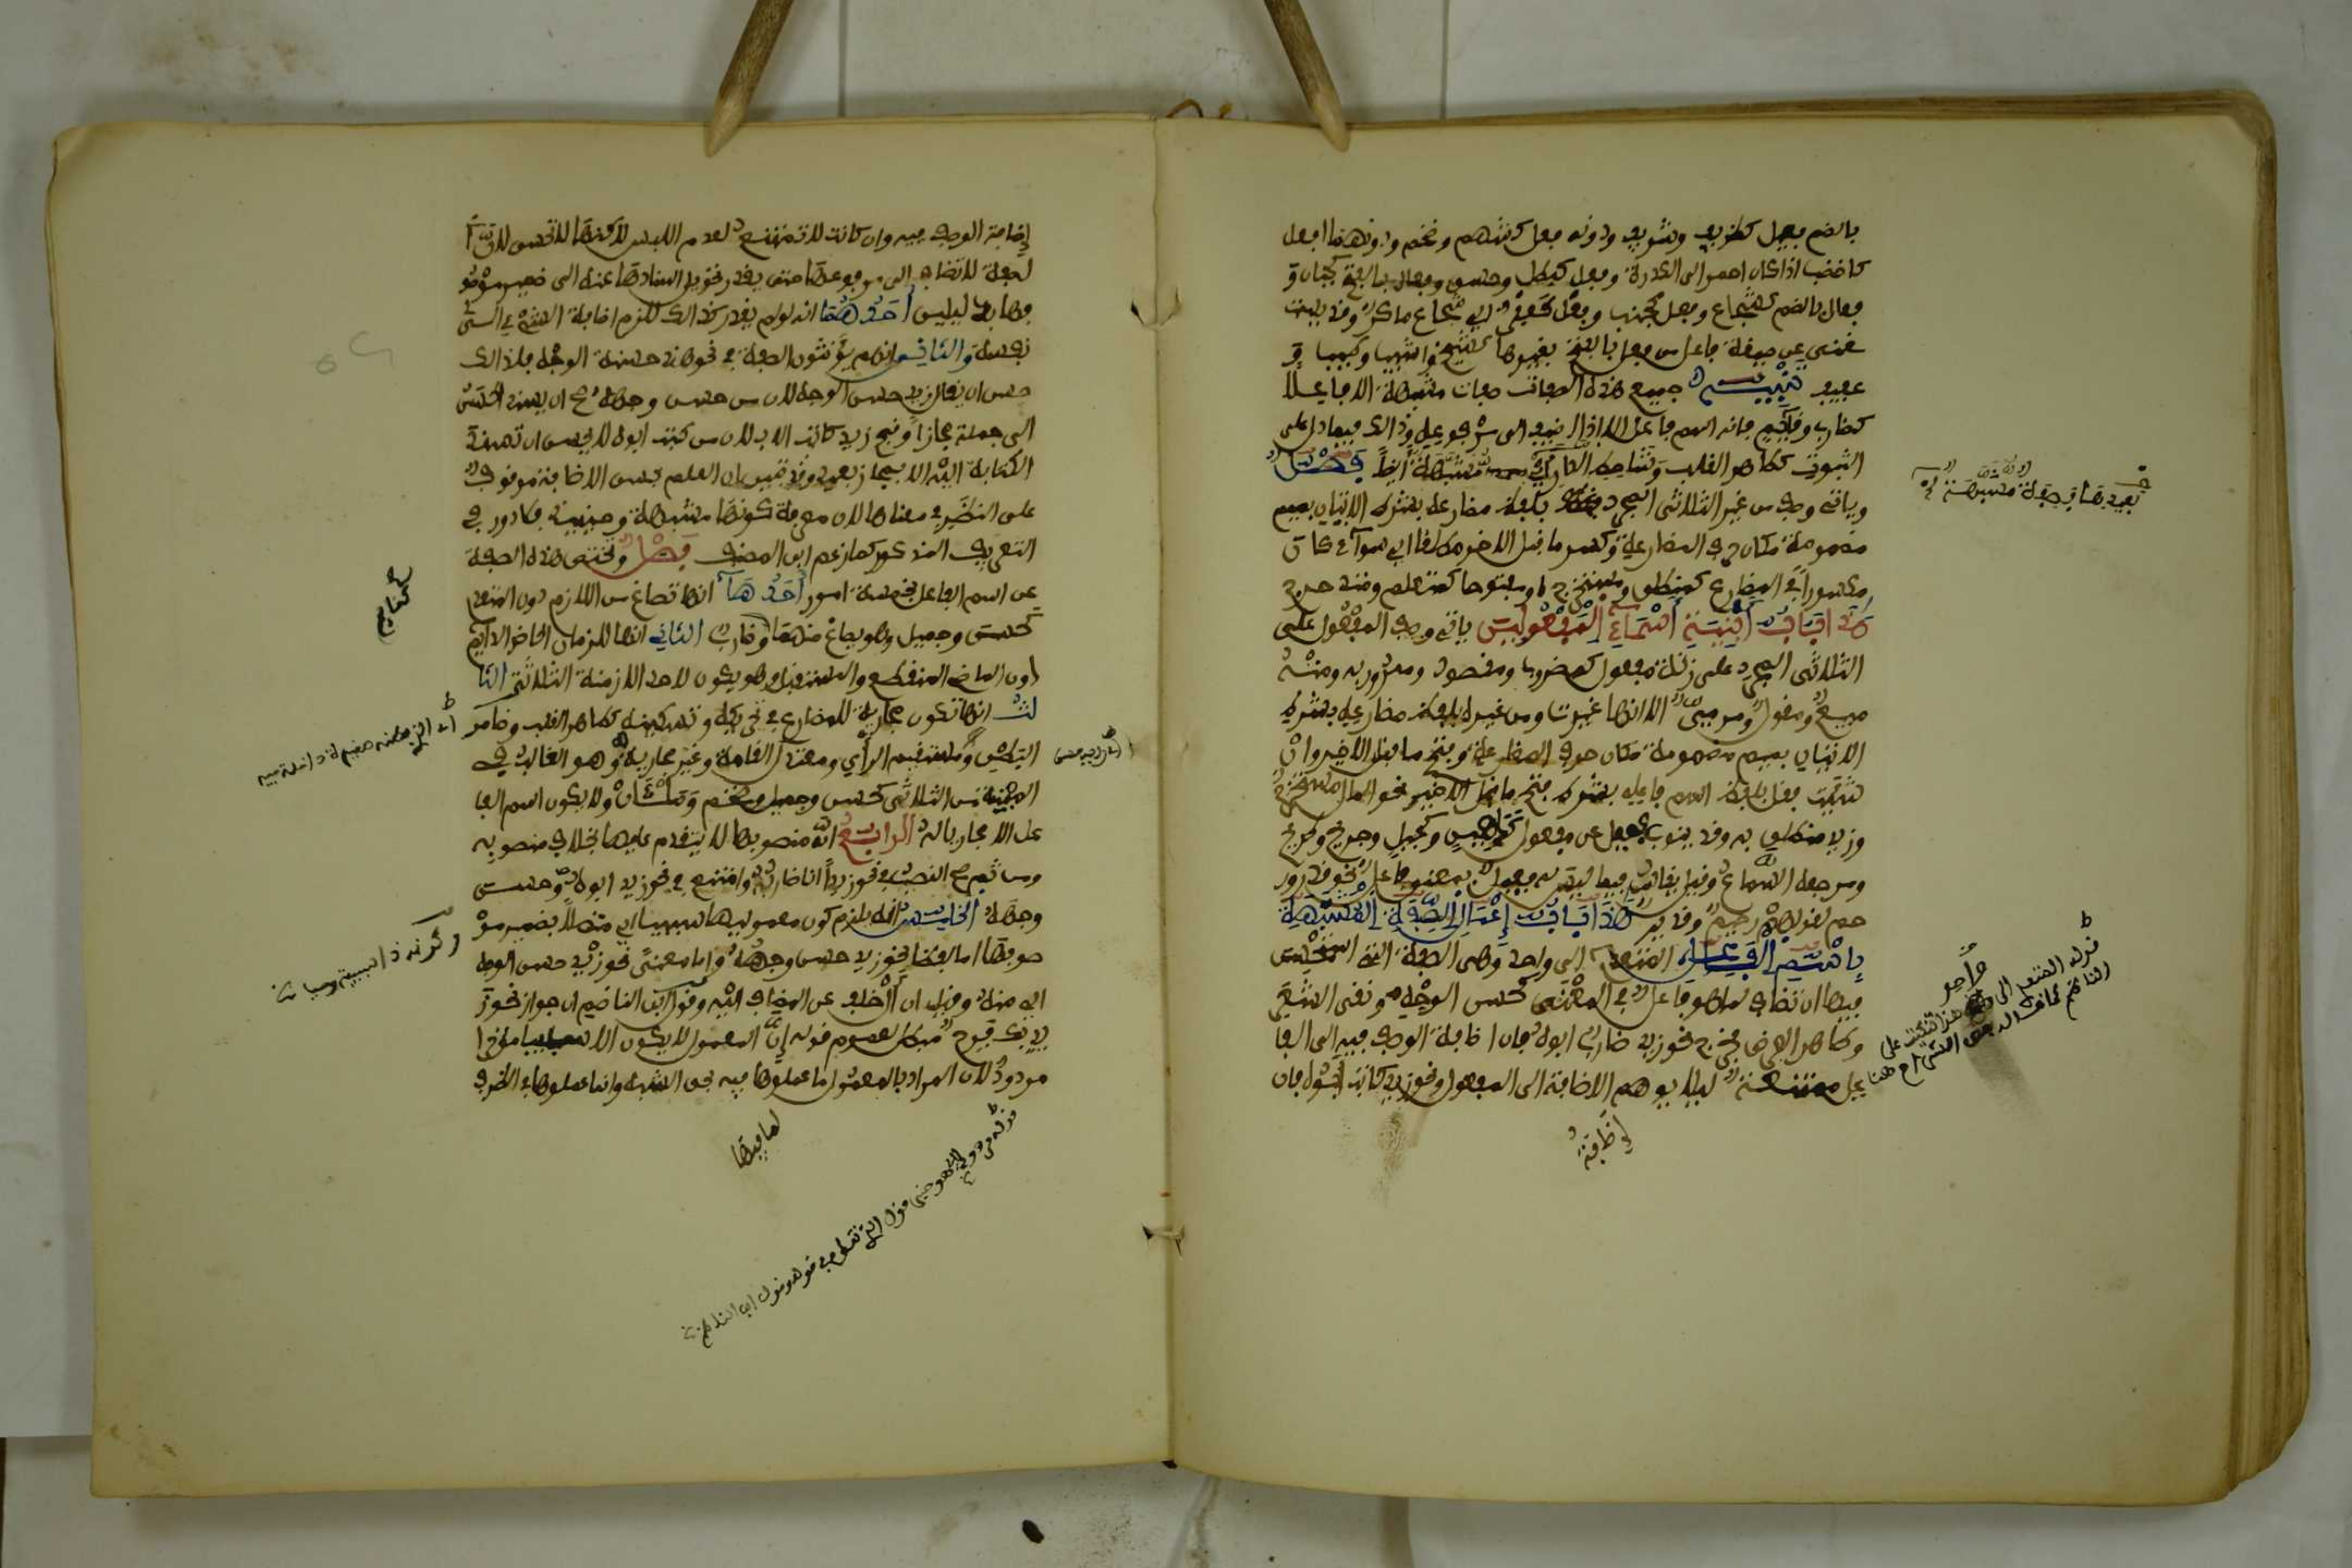 بالضم فعيل كظريف وشريف ودونه فعل كشهم وضخم ودونهما افعل
كاخضب اذا كان احمر الى الكدرة وفعل كبطل وحسن وفعال بالفتح كجبان و
فعال بالضم كشجاع وفعل كجنب وفعل كعفر اي شجاع ماكر وقد يستـ
ـغنى عن صيغة فاعل من فعل بالفتح بغيرها كشيخ واشيب وطيب و
عفيف تنبيه جميع هذه الصفات صفات مشبهة الا فاعلا
كضارب وقائم فانه اسم فاعل الا اذا اضيف الى مرفوعه وذالك فيما دل على
الثبوت كطاهر القلب وشاحط الدار اي مشبهة ايضا فصل
وياتي وصف من غير الثلاثي المجرد بلفظ مضارعه بشرط الاتيان بميم
مضمومة مكان حرف المضارعة وكسر ما قبل الاخر مطلقا اي سواء كان
مكسورا في المضارع كمنطلق ومستخرج او مفتوحا كمتعلم ومتدحرج
هذا باب ابنية اسماء المفعولين ياتي وصف المفعول على
الثلاثي المجرد على زنة مفعول كمضروب ومقصود وممرور به ومنه
مبيع ومقول ومرمي الا انها غيرت ومن غيره بلفظ مضارعه بشرط
الاتيان بميم مضمومة مكان حرف المضارعة وفتح ما قبل الاخير وان
شئت فقل بلفظ اسم فاعله بشرط فتح ما قبل الاخير نحو المال مستخرج
وزيد منطلق به وقد ينوب فعيل عن مفعول كدهين وكحيل وجريح وطريح
ومرجعه السماع وقيل ينقاس فيما ليس له فعيل بمعنى فاعل نحو قدر ور
حم لقولهم رحيم وقدير هذا باب اعمال الصفة المشبهة
باسم الفاعل المتعدي الى واحد وهي الصفة التي استحسن
فيها ان تضاف لما هو فاعل في المعنى كحسن الوجه ونقي الثغر
وطاهر العرض فخرج نحو زيد ضارب ابوه فان اضافة الوصف فيه الى الفا
عل ممتنعة ليلا يوهم الاضافة الى المفعول ونحو زيد كاتب ابوه فان
اضافة
واحد
قوله المتعدي الى
إضافة الوصف فيه وان كانت لا تمتنع لعدم اللبس لكنها لا تحسن لان ا
لصفة لا تضاف الى مرفوعها حتى يقدر تحويل اسنادها عنه الى ضمير موصو
فها بدليلين احدهما انه لو لم يقدر كذالك للزم اضافة الشيء الى
نفسه والثاني انهم يؤنثون الصفة في نحو هند حسنة الوجه فلذالك
حسن ان يقال زيد حسن الوجه لان من حسن وجهه حسن ان يسند الحسن
الى جملته مجازا وقبح زيد كاتب الاب لان من كتب ابوه لا يحسن ان تسند
الكتابة اليه الا بمجاز بعيد وقد تبين ان العلم بحسن الاضافة موقوف
على النظر في معناها لا على معرفة كونها مشبهة وحينئذ فلا دور في
التعريف المذكور كما زعم ابن المصنف فصل وتختص هذه الصفة
عن اسم الفاعل بخمسة امور احدها انها تصاغ من اللازم دون المتعدي
كحسن وجميل وهو يصاغ منهما وضارب الثاني انها للزمان الحاضر الدائم
دون الماضي المنقطع والمستقبل وهو يكون لاحد الازمنة الثلاثة الثا
لث انها تكون مجارية للمضارع في تحريكه وتسكينه كطاهر القلب وضامر
البطن ومستقيم الراي ومعتدل القامة وغير مجارية له وهو الغالب في
المبنية من الثلاثي كحسن وجميل وضخم وملآن ولا يكون اسم الفا
عل الا مجاريا له الرابع ان منصوبها لا يتقدم عليها بخلاف منصوبه
ومن ثم صح النصب في نحو زيدا انا ضاربه وامتنع في نحو زيد ابوه حسن
وجهه الخامس انه يلزم كون معمولها سببيا اي متصلا بضمير مو
صوفها اما لفظا نحو زيد حسن وجهه واما معنى نحو زيد حسن الوجه
اي منه وقيل ان ال خلف عن المضاف اليه وقول ابن الناظم ان جواز نحو ز
يد بك فرح مبطل لعموم قوله ان المعمول لا يكون الا سببيا مؤخرا
مردود لان المراد بالمعمول ما عملها فيه بحق الشبه وانما عملها في الظرف
لما فيها